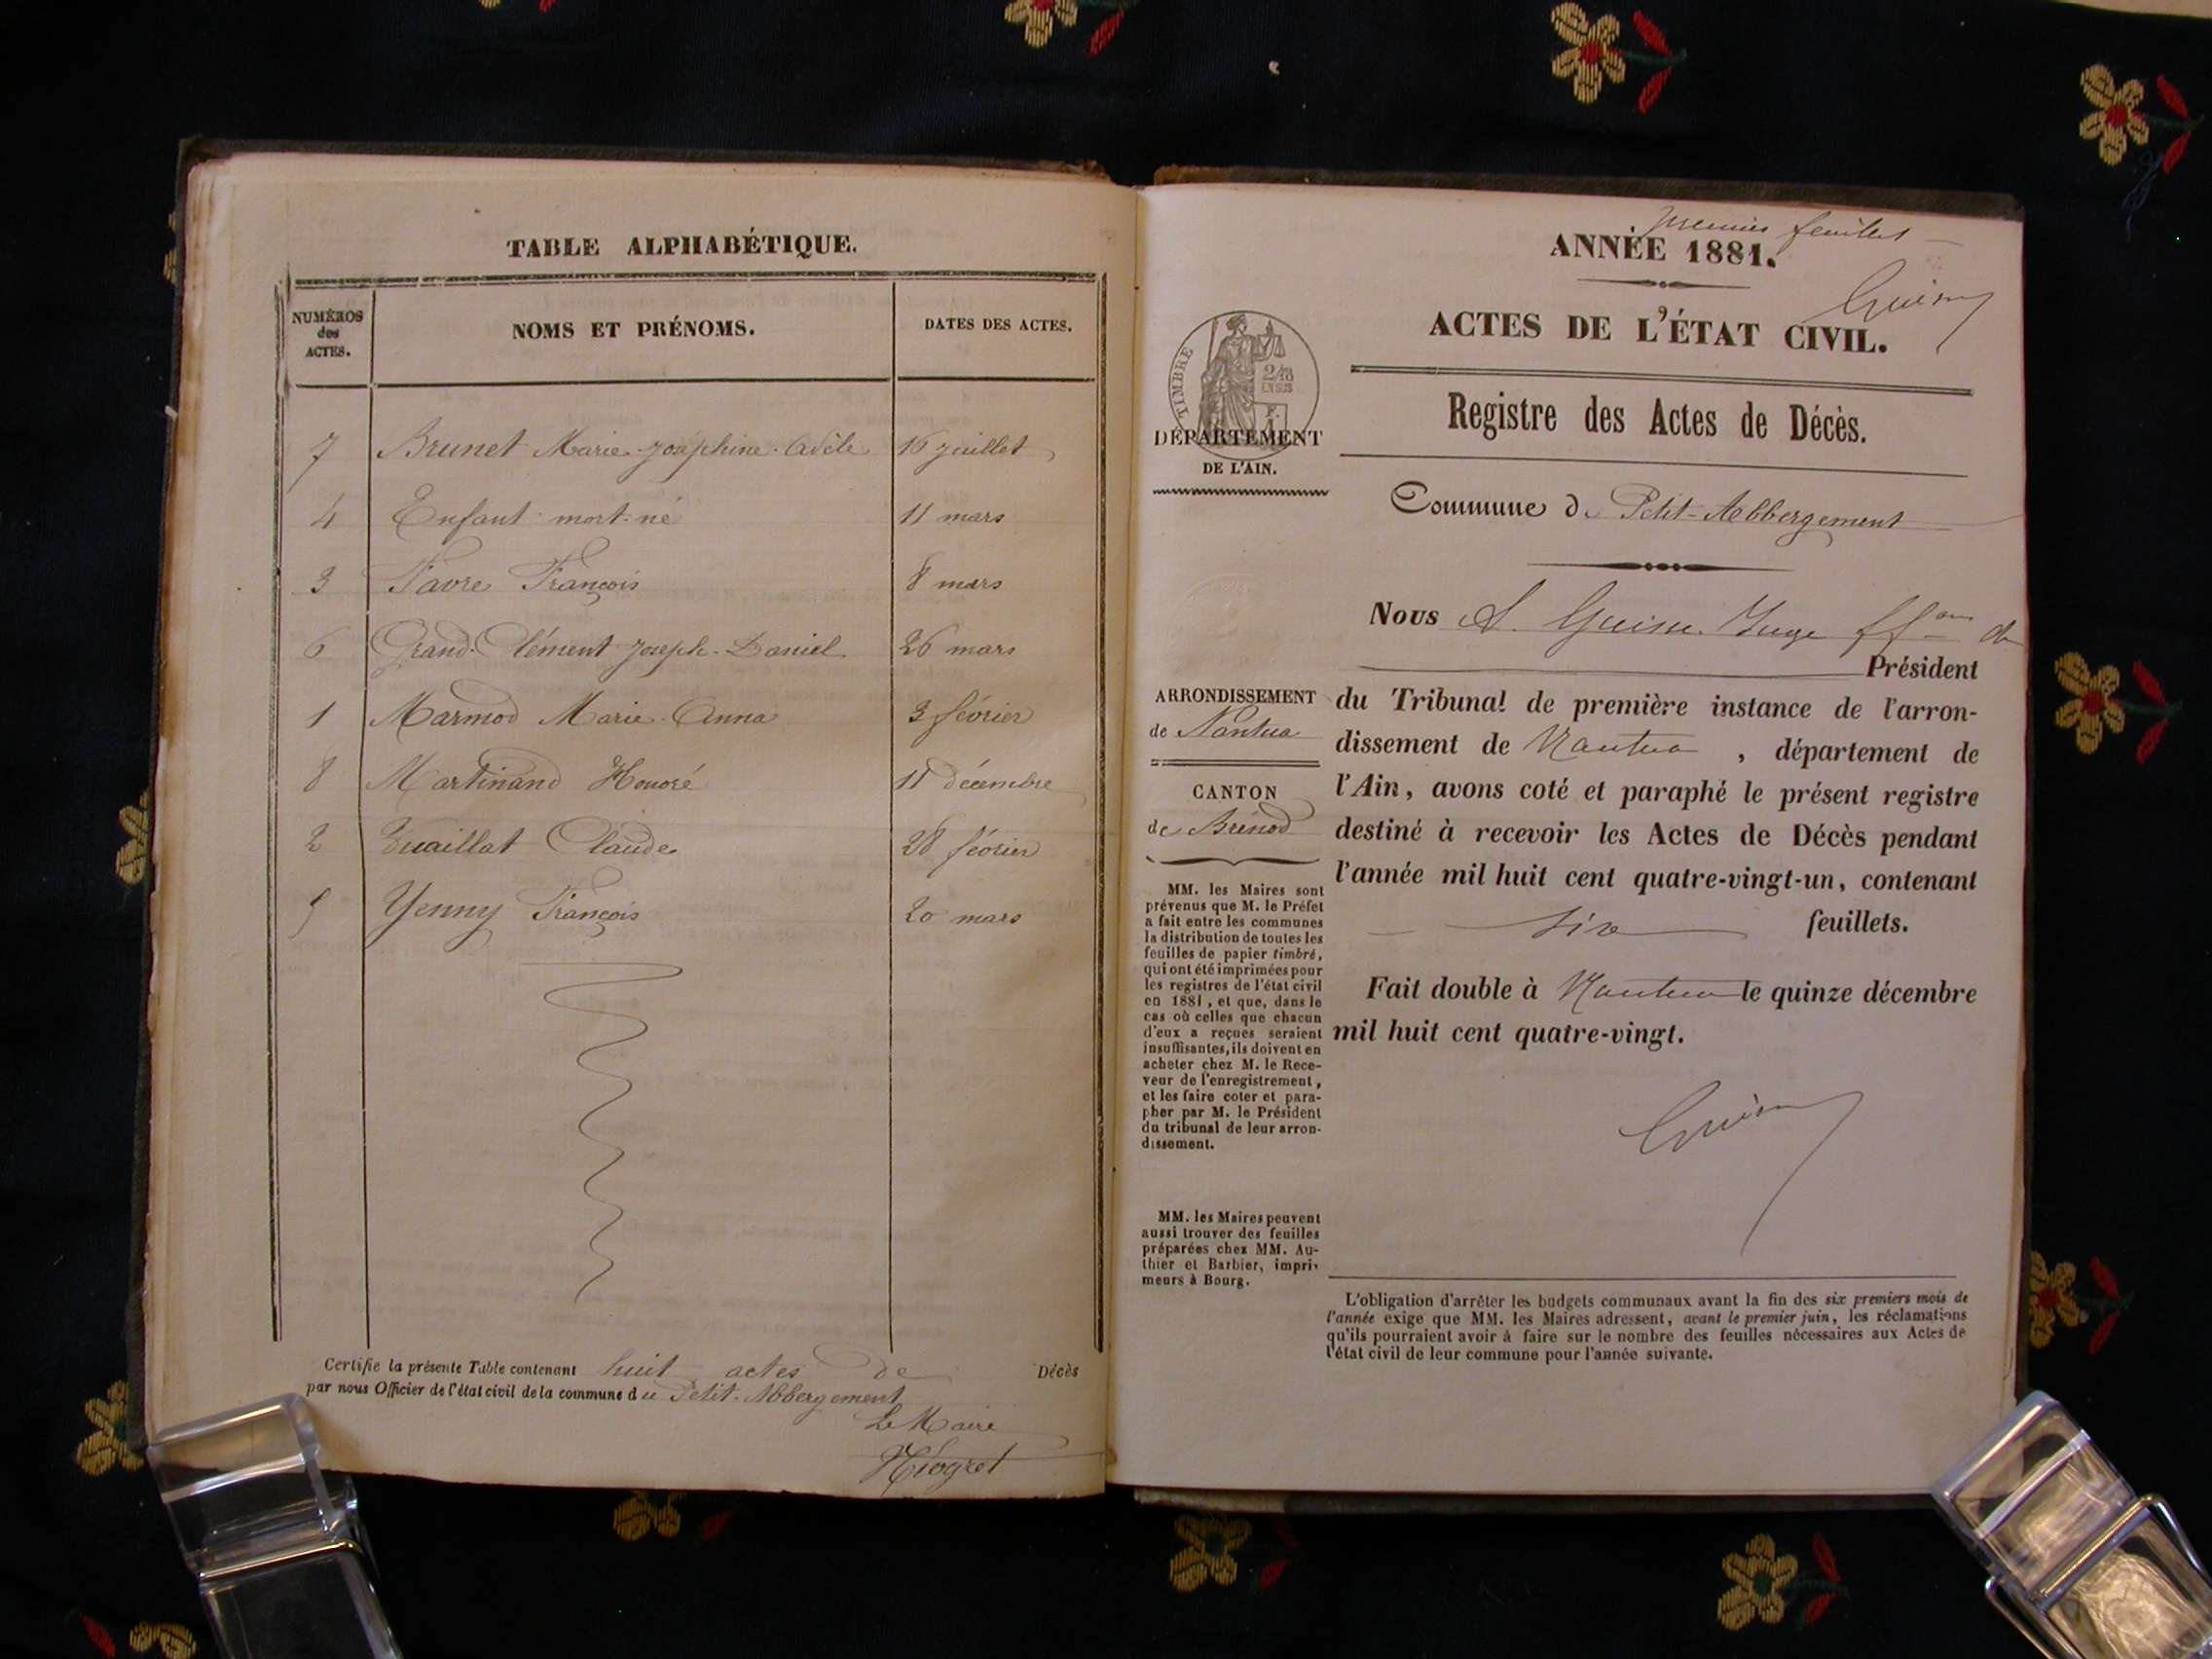 TABLE ALPHABÉTIQUE.
NUMÉROS
des
ACTES.
NOMS ET PRÉNOMS.
DATES DES ACTES.
7 Brunet Marie-Joséphine-Adèle 16 juillet
4 Enfant mort-né 11 mars
3 Favre François 8 mars
6 Grand-Clément Joseph-Daniel 26 mars
1 Marmod Marie-Anna 3 février
8 Martinand Honoré 11 décembre
2 Tuaillat Claude 28 février
5 Yenny François 20 mars
Certifie la présente Table contenant huit actes de Décès
par nous Officier de l'état civil de la commune du Petit-Abbergement
Le Maire
Niogret
premier feuillet
ANNÉE 1881.
Guison
ACTES DE L'ÉTAT CIVIL.
TIMBRE
2/10
EN SUS
DÉPARTEMENT
DE L'AIN.
Registre des Actes de Décès.
Commune de Petit-Abbergement
Nous A. Juge ff on de
Président
du Tribunal de première instance de l'arron-
dissement de Nantua, département de
l'Ain, avons coté et paraphé le présent registre
destiné à recevoir les Actes de Décès pendant
l'année mil huit cent quatre-vingt-un, contenant
six feuillets.
Fait double à Nantua le quinze décembre
mil huit cent quatre-vingt.
ARRONDISSEMENT
de Nantua
CANTON
de Brénod
MM. les Maires sont
prévenus que M. le Préfet
a fait entre les communes
la distribution de toutes les
feuilles de papier timbré,
qui ont été imprimées pour
les registres de l'état civil
en 1881, et que, dans le
cas où celles que chacun
d'eux a reçues seraient
insuffisantes, ils doivent en
acheter chez M. le Rece-
veur de l'enregistrement,
et les faire coter et para-
pher par M. le Président
du tribunal de leur arron-
dissement.
MM. les Maires peuvent
aussi trouver des feuilles
préparées chez MM. Au-
thier et Barbier, impri-
meurs à Bourg.
L'obligation d'arrêter les budgets communaux avant la fin des six premiers mois de
l'année exige que MM. les Maires adressent, avant le premier juin, les réclamations
qu'ils pourraient avoir à faire sur le nombre des feuilles nécessaires aux Actes de
l'état civil de leur commune pour l'année suivante.